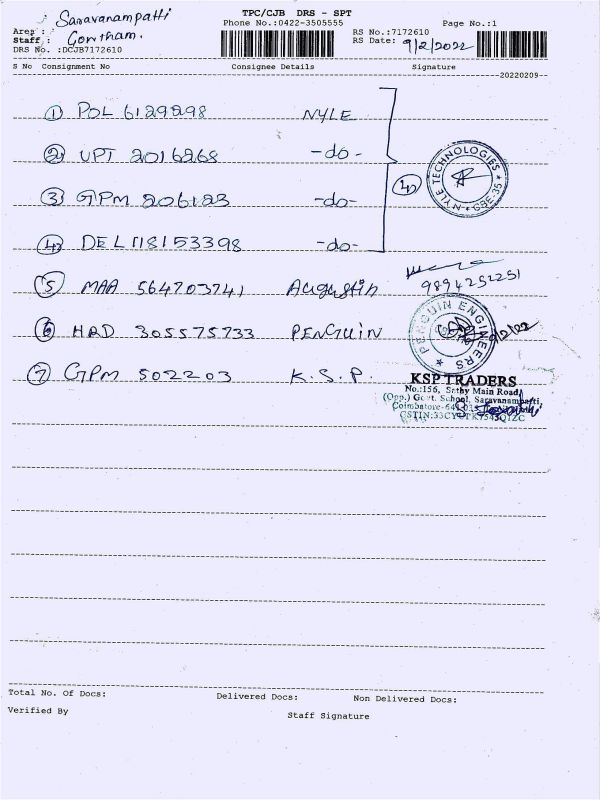 TPC/CJB DRS - SPT
Saravanampatti
Phone No.:0422-3505555
Page No.:1
Area :
RS No.:7172610
Staff : Gowtham.
RS Date: 9/2/2022
DRS No. :DCJB7172610
S No Consignment No Consignee Details Signature
20220209
① POL 6129298 NYLE
② UPT 2016268 -do-
③ GPM 206123 -do-
④ DEL 118153398 -do-
④
NYLE TECHNOLOGIES * CBE-35 *
⑤ MAA 564703741 Augustin
9894252251
⑥ HRD 305575733 PENGUIN
PENGUIN ENGINEERS
9/2/22
⑦ GPM 502203 K.S.P.
KSP TRADERS
No.:156, Sathy Main Road,
(Opp.) Govt. School, Saravanampatti,
Coimbatore-641 035
Total No. Of Docs: Delivered Docs: Non Delivered Docs:
Verified By Staff Signature